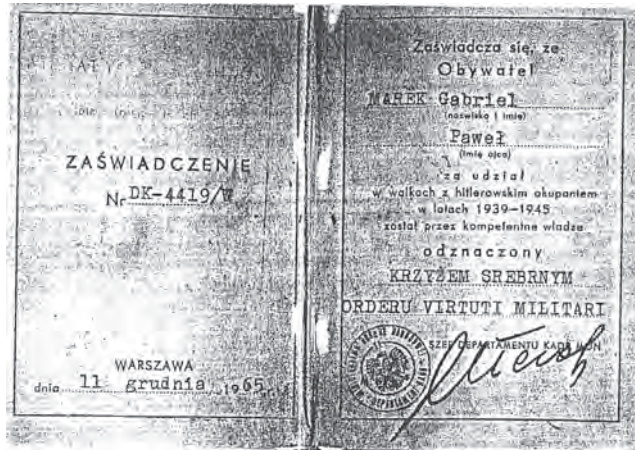 ZAŚWIADCZENIE
Nr DK-4419/W
WARSZAWA
dnia 11 grudnia 1965 r.
Zaświadcza się, że
Obywatel
MAREK Gabriel
(nazwisko i imię)
Paweł
(imię ojca)
za udział
w walkach z hitlerowskim okupantem
w latach 1939-1945
został przez kompetentne władze
odznaczony
KRZYŻEM SREBRNYM
ORDERU VIRTUTI MILITARI
SZEF DEPARTAMENTU KADR MON